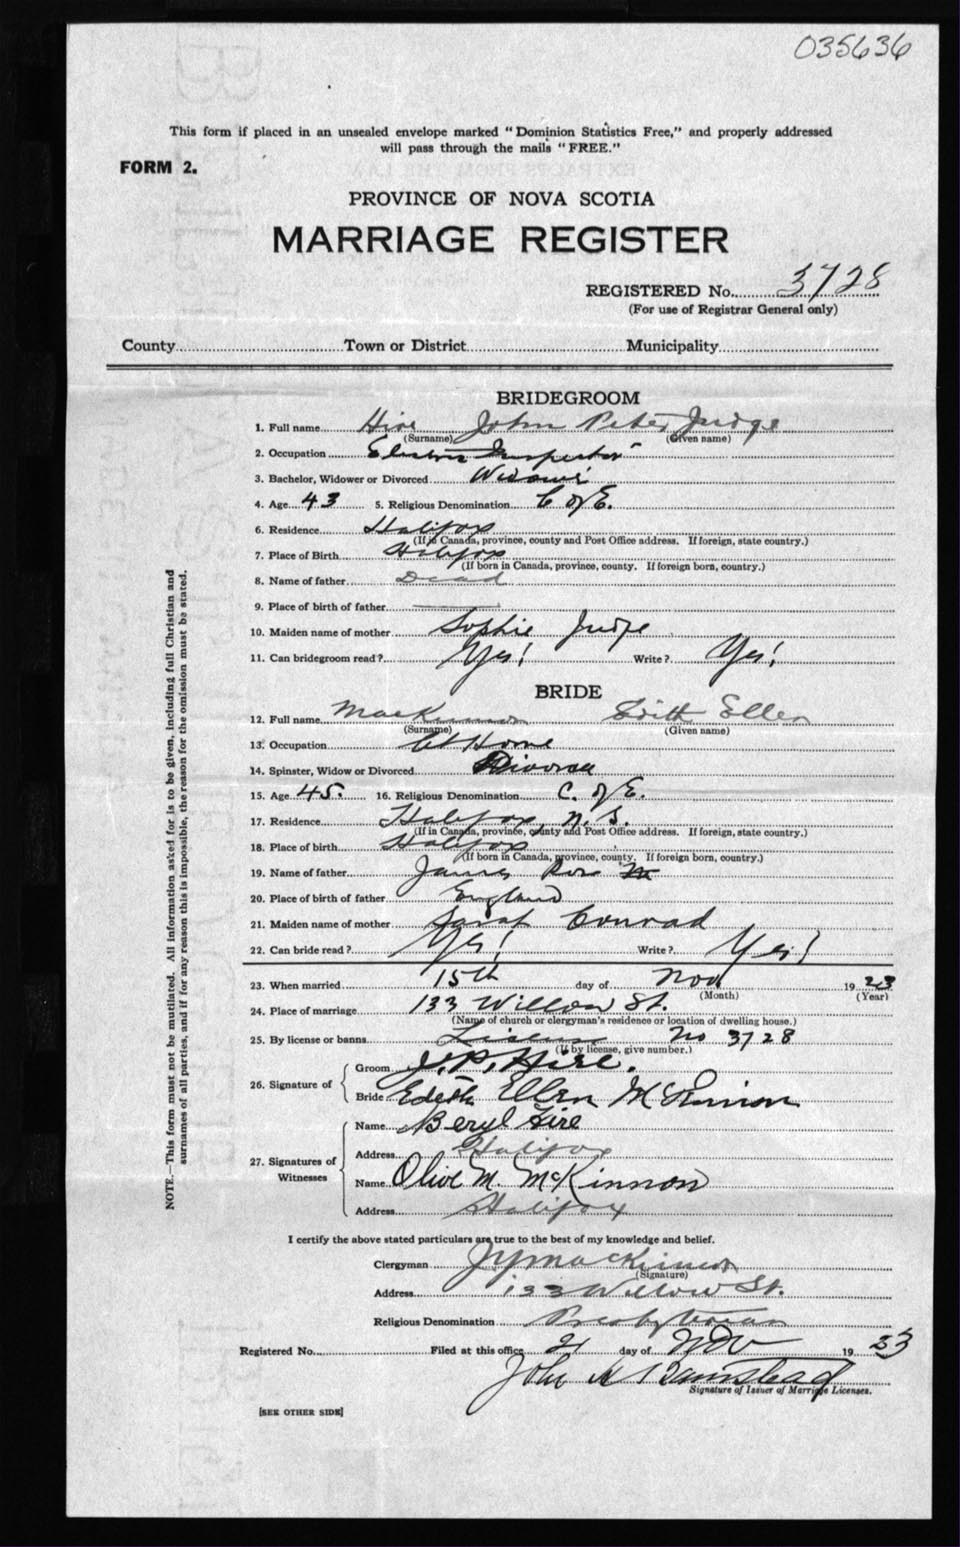 035636
This form if placed in an unsealed envelope marked "Dominion Statistics Free," and properly addressed
will pass through the mails "FREE."
FORM 2.
PROVINCE OF NOVA SCOTIA
MARRIAGE REGISTER
REGISTERED No. 3728
(For use of Registrar General only)
County Town or District Municipality
BRIDEGROOM
1. Full name Hire John Peter Judge
(Surname) (Given name)
2. Occupation Inspector
3. Bachelor, Widower or Divorced Widower
4. Age 43 5. Religious Denomination C of E.
6. Residence Halifax
(If in Canada, province, county and Post Office address. If foreign, state country.)
7. Place of Birth Halifax
(If born in Canada, province, county. If foreign born, country.)
8. Name of father Dead
9. Place of birth of father
10. Maiden name of mother Sophie Judge
11. Can bridegroom read? Yes! Write? Yes!
BRIDE
12. Full name MacKinnon Edith Ellen
(Surname) (Given name)
13. Occupation At Home
14. Spinster, Widow or Divorced Divorced
15. Age 45. 16. Religious Denomination C. of E.
17. Residence Halifax, N. S.
(If in Canada, province, county and Post Office address. If foreign, state country.)
18. Place of birth Halifax
(If born in Canada, province, county. If foreign born, country.)
19. Name of father James
20. Place of birth of father England
21. Maiden name of mother Sarah Conrad
22. Can bride read? Yes! Write? Yes!
23. When married 15th day of Nov 1923
(Month) (Year)
24. Place of marriage 133 Willow St.
(Name of church or clergyman's residence or location of dwelling house.)
25. By license or banns License No 3728
(If by license, give number.)
26. Signature of
Groom J. P. Hire.
Bride Edith Ellen McKinnon
27. Signatures of Witnesses
Name Beryl Hire
Address Halifax
Name Olive M. McKinnon
Address Halifax
I certify the above stated particulars are true to the best of my knowledge and belief.
Clergyman MacKinnon
(Signature)
Address 133 Willow St.
Religious Denomination Presbyterian
Registered No. Filed at this office 21 day of Nov 1923
John A Barnstead
Signature of Issuer of Marriage Licenses.
[SEE OTHER SIDE]
NOTE.—This form must not be mutilated. All information asked for is to be given, including full Christian and
surnames of all parties, and if for any reason this is impossible, the reason for the omission must be stated.